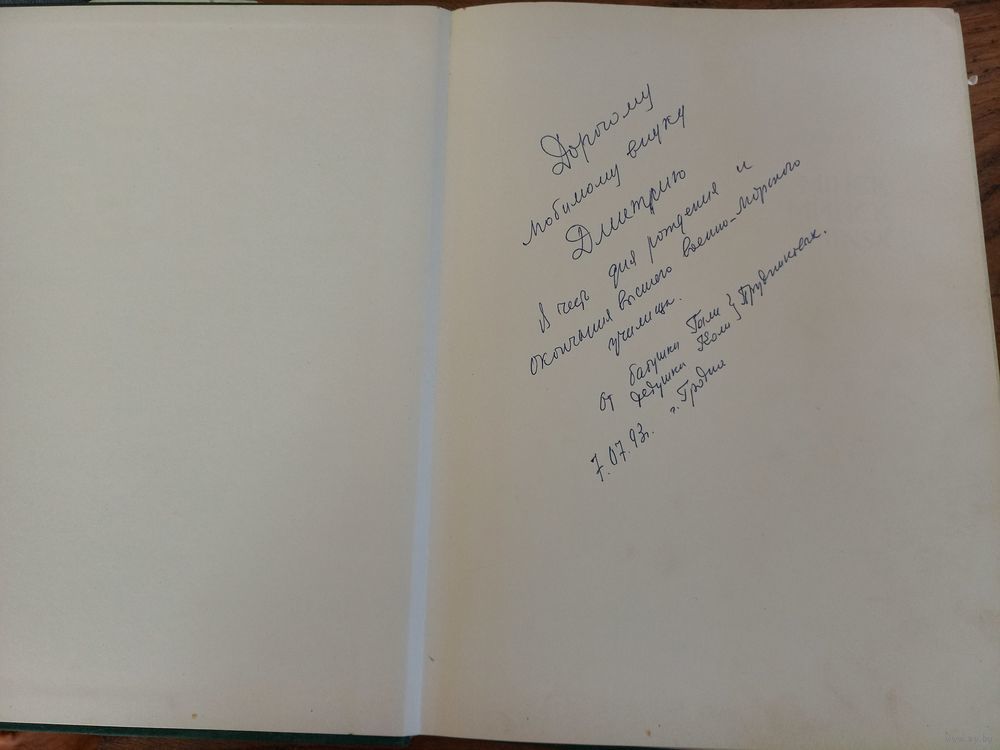 Дорогому
любимому внуку
Дмитрию
В честь дня рождения и
окончания высшего военно-морского
училища.
От бабушки Гали } Прудниковых.
дедушки Коли
7.07.93г. г. Гродна